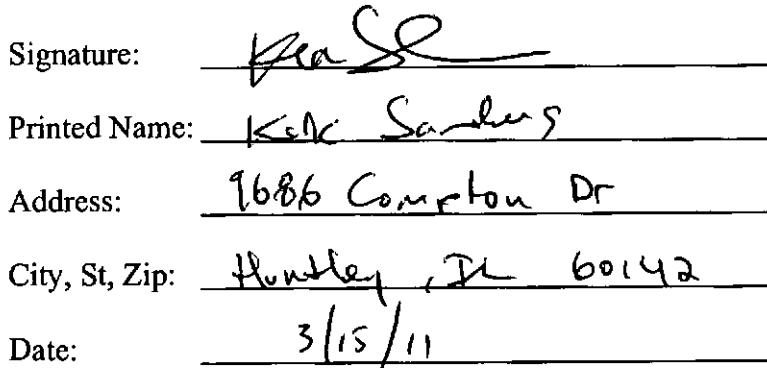 Signature:
Printed Name: Sanders
Address: 9686 Compton Dr
City, St, Zip: Huntley, IL 60142
Date: 3/15/11